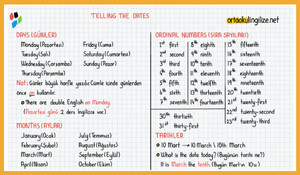 TELLING THE DATES
ortaokulingilize.net
DAYS (GÜNLER)
Monday (Pazartesi) Friday (Cuma)
Tuesday (Salı) Saturday (Cumartesi)
Wednesday (Çarşamba) Sunday (Pazar)
Thursday (Perşembe)
Not: Günler büyük harfle yazılır. Cümle içinde günlerden
önce on kullanılır.
There are double English on Monday
(Pazartesi günü 2 ders İngilizce var.)
MONTHS (AYLAR)
January (Ocak) July (Temmuz)
February (Şubat) August (Ağustos)
March (Mart) September (Eylül)
April (Nisan) October (Ekim)
ORDINAL NUMBERS (SIRA SAYILARI)
1st first 8th eighth 15th fifteenth
2nd second 9th ninth 16th sixteenth
3rd third 10th tenth 17th seventeenth
4th fourth 11th eleventh 18th eighteenth
5th fifth 12th twelfth 19th nineteenth
6th sixth 13th thirteenth 20th twentieth
7th seventh 14th fourteenth 21st twenty-first
30th thirtieth 22nd twenty-second
31st thirty-first 23rd twenty-third
TARİHLER
10 Mart → 10 March \ 10th March
What is the date today? (Bugünün tarihi ne?)
It is March the tenth (Bugün Mart'ın 10'u)